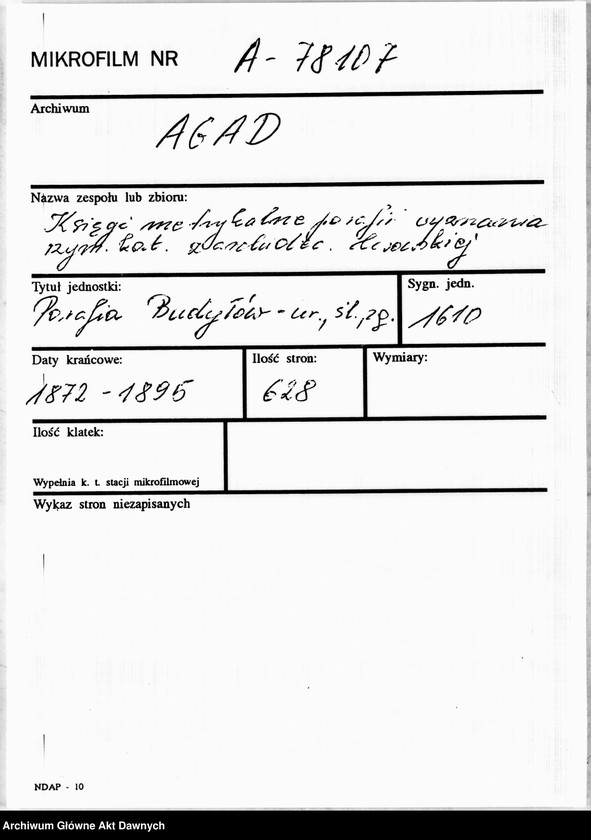 MIKROFILM NR A-78107
Archiwum
AGAD
Nazwa zespołu lub zbioru:
Księgi metrykalne parafii wyznania
rzym. kat. z archidiec. lwowskiej
Tytuł jednostki:
Parafia Budyłów - ur., śl., zg.
Sygn. jedn.
1610
Daty krańcowe:
1872 - 1895
Ilość stron:
628
Wymiary:
Ilość klatek:
Wypełnia k. t. stacji mikrofilmowej
Wykaz stron niezapisanych
NDAP - 10
Archiwum Główne Akt Dawnych